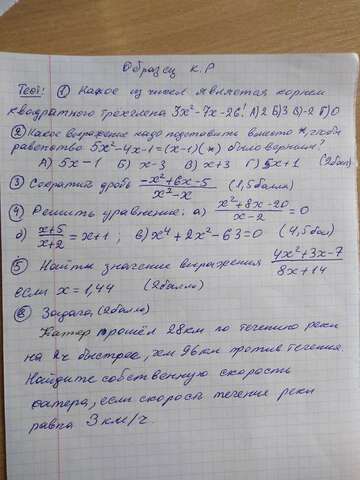 Образец К.Р
Тест! ① Какое из чисел является корнем
квадратного трехчлена 3x²-7x-26! А)2 Б)3 В)-2 Г)0
② Какое выражение надо подставить вместо *, чтобы
равенство 5x²-4x-1=(x-1)(*) было верным?
А) 5x-1 Б) x-3 В) x+3 Г) 5x+1 (2бал)
③ Сократить дробь (-x²+6x-5)/(x²-x) (1,5балла)
④ Решить уравнение: а) (x²+8x-20)/(x-2)=0
б) (x+5)/(x+2)=x+1; в) x⁴+2x²-63=0 (4,5бал)
⑤ Найти значение выражения (4x²+3x-7)/(8x+14)
если x=1,44 (2балла)
⑥ Задача (2балла)
Катер прошёл 28км по течению реки
на 2ч быстрее, чем 96км против течения.
Найдите собственную скорость
катера, если скорость течение реки
равна 3км/ч.